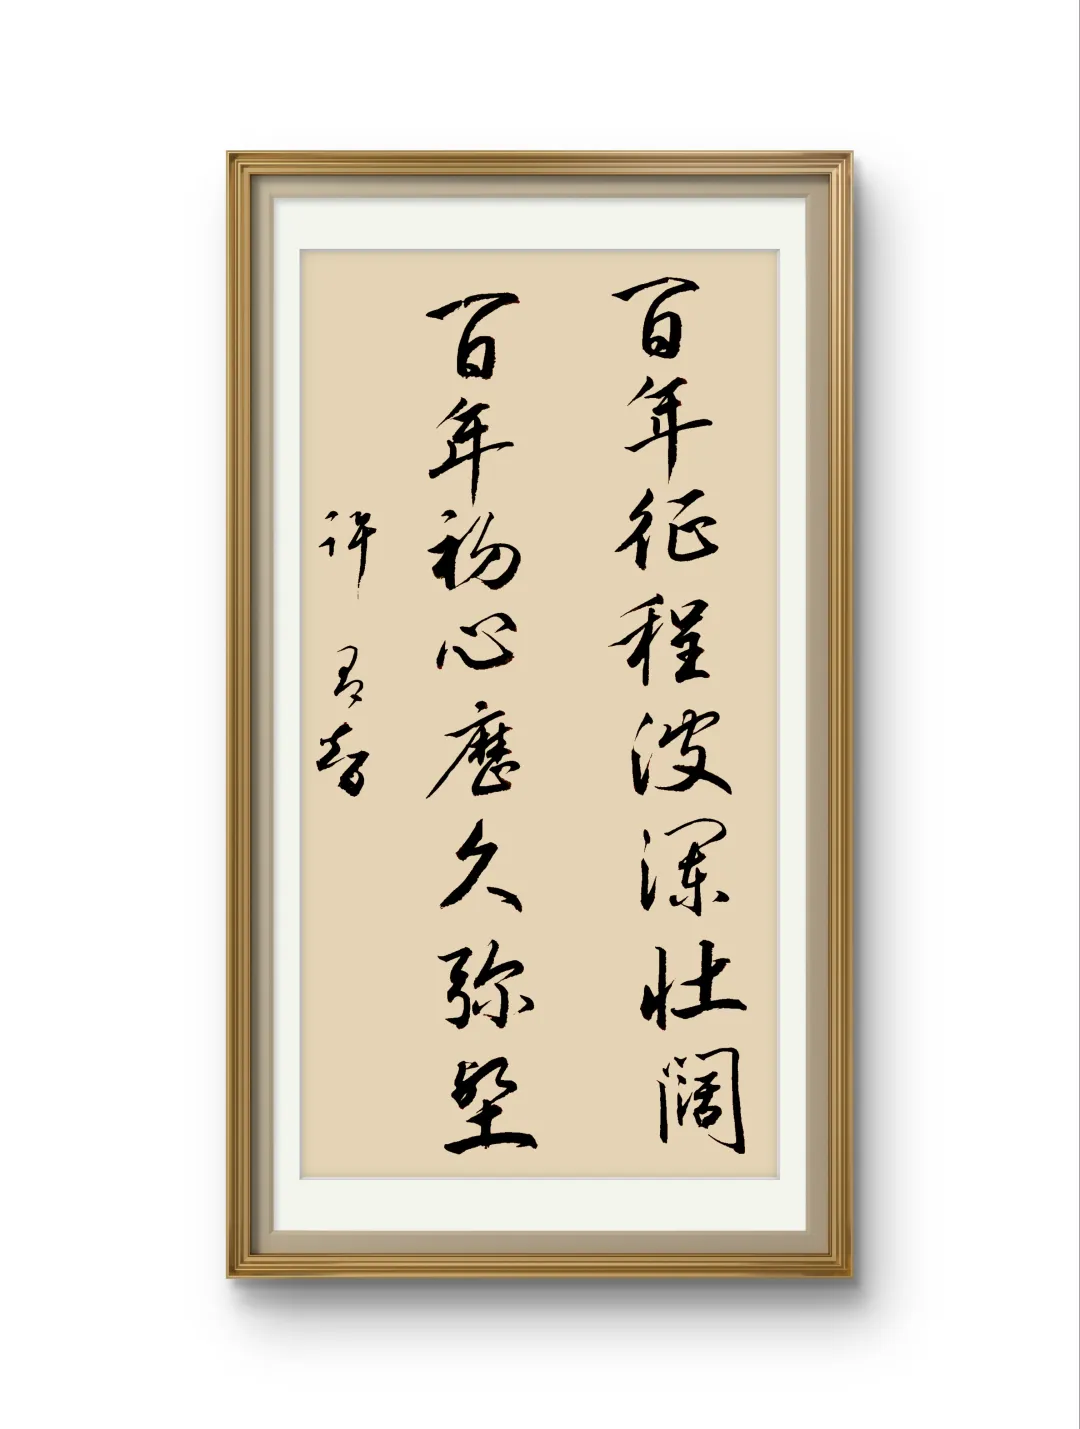 百年征程波澜壮阔
百年初心历久弥坚
许